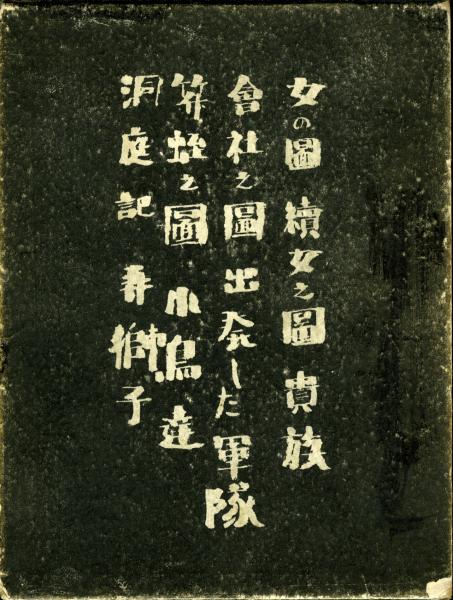 女の圖 續女之圖 貴族
會社之圖 出発した 軍隊
算蛭之圖 小鳥達
洞庭記 弄獅子